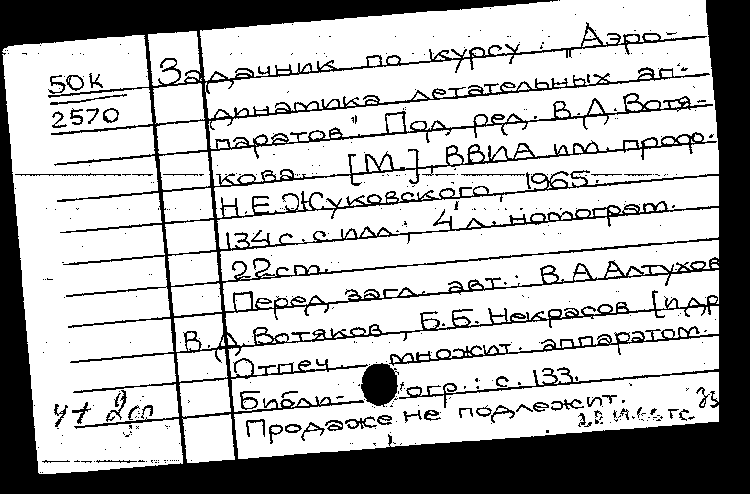 50К
2570
Задачник по курсу: „Аэро-
динамика летательных ап-
паратов". Под ред. В.Д.Вотя-
кова. [М.], ВВИА им. проф.
Н.Е.Жуковского, 1965.
134 с. с илл.; 4 л. номограм.
22 cm.
Перед загл. авт.: В.А.Алтухов
В.Д.Вотяков, Б.Б.Некрасов [и др
Отпеч. множит. аппаратом.
Библи-огр.: с. 133.
Продаже не подлежит.